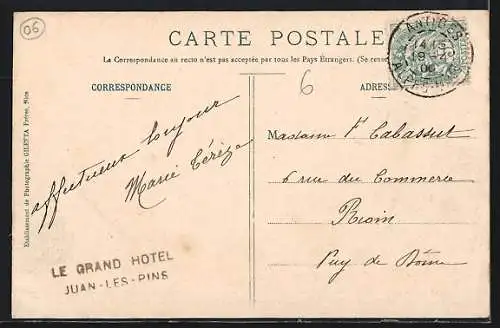 06
CARTE POSTALE
La Correspondance au recto n'est pas acceptée par tous les Pays Étrangers. (Se
CORRESPONDANCE
ADRES
ANTIBES
19
06
6
Etablissement de Photographie GILETTA Frères, Nice
affectueux bonjour
Marie Térèze
LE GRAND HOTEL
JUAN-LES-PINS
Madame Fs Cabassut
6 rue du Commerce
Riom
Puy de Dôme